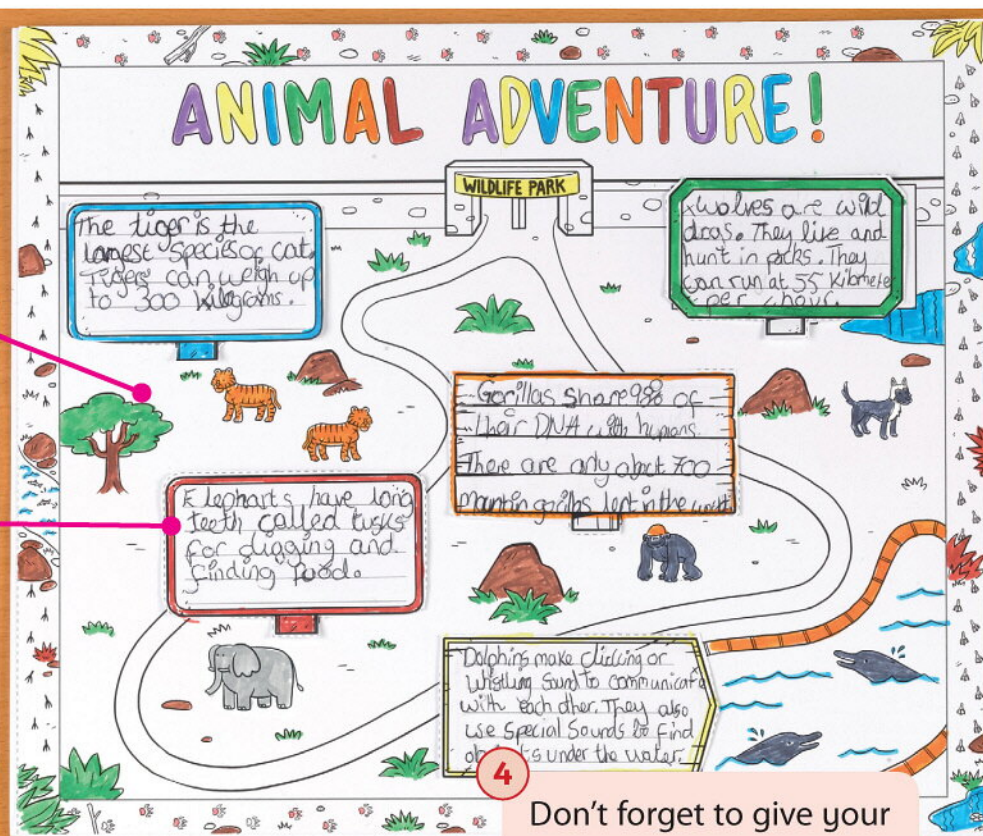 ANIMAL ADVENTURE!
WILDLIFE PARK
The tiger is the
largest species of cat.
Tigers can weigh up
to 300 kilograms.
wolves are wild
dogs. They live and
hunt in packs. They
can run at 55 kilometer
per hour.
Gorillas share 98% of
their DNA with humans.
There are only about 700
mountin gorillas in the
Elephants have long
teeth called tusks
for digging and
finding food.
Dolphins make clicking or
whistling sound to communicate
with each other. They also
use special sounds to find
under the water.
4
Don't forget to give your